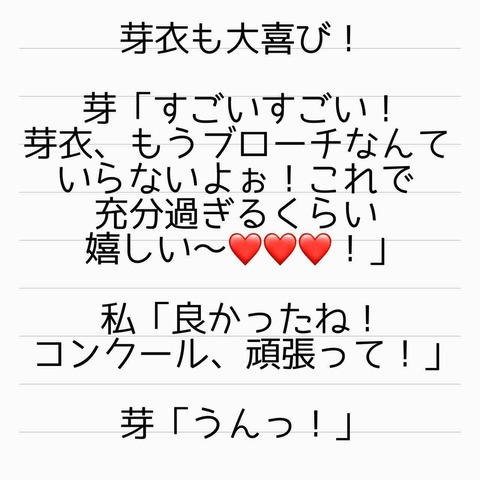 芽衣も大喜び！
芽「すごいすごい！
芽衣、もうブローチなんて
いらないよぉ！これで
充分過ぎるくらい
嬉しい〜❤️❤️❤️！」
私「良かったね！
コンクール、頑張って！」
芽「うんっ！」